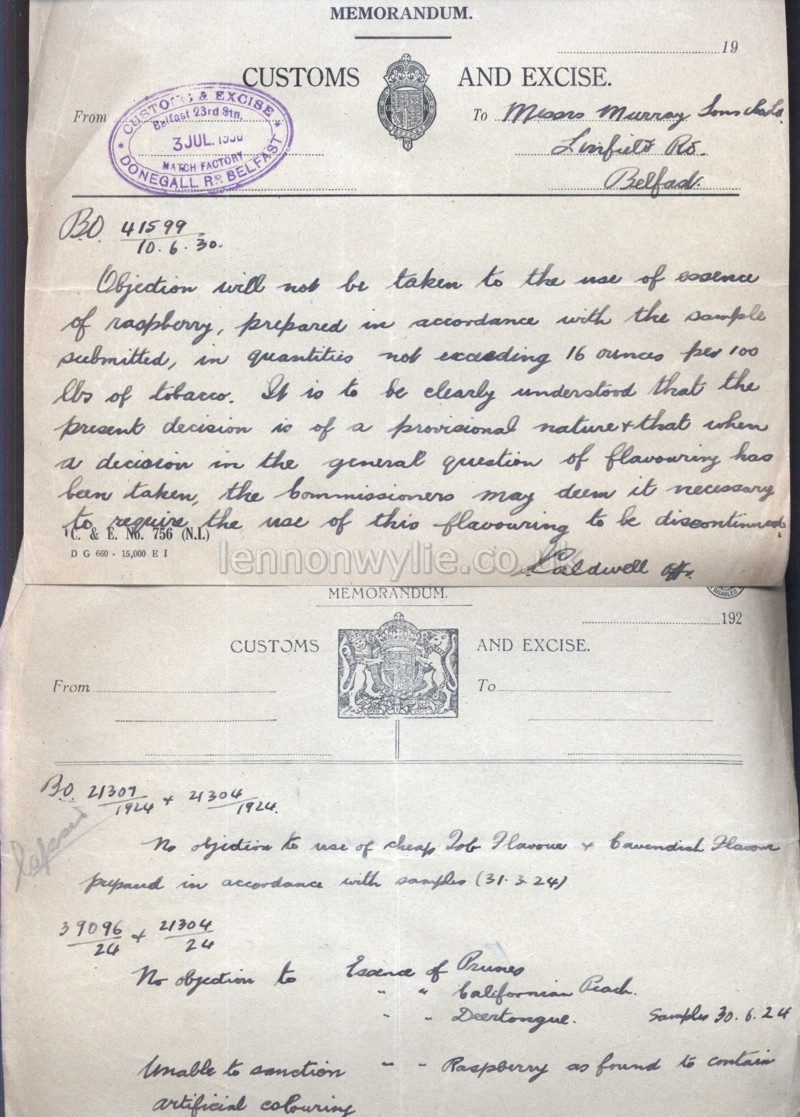 MEMORANDUM.
19
CUSTOMS AND EXCISE.
From
CUSTOMS & EXCISE
Belfast 23rd Stn,
3 JUL. 1930
MATCH FACTORY
DONEGALL Rd BELFAST
To Messrs Murray Sons & Co Ld
Linfield Rd.
Belfast.
BO 41599
10.6.30.
Objection will not be taken to the use of essence
of raspberry, prepared in accordance with the sample
submitted, in quantities not exceeding 16 ounces per 100
lbs of tobacco. It is to be clearly understood that the
present decision is of a provisional nature & that when
a decision in the general question of flavouring has
been taken, the Commissioners may deem it necessary
to require the use of this flavouring to be discontinued
C. & E. No. 756 (N.I.)
D G 660 - 15,000 E I
lennonwylie.co.uk
Caldwell Offr.
MEMORANDUM.
192
CUSTOMS AND EXCISE.
From
To
BO 21307/1924 + 21304/1924.
No objection to use of cheap Tob Flavour & Cavendish Flavour
prepared in accordance with samples (31.3.24)
39096/24 + 21304/24
No objection to Essence of Prunes
" " Californian Peach.
" " Deertongue. Samples 30.6.24
Unable to sanction " " Raspberry as found to contain
artificial colouring